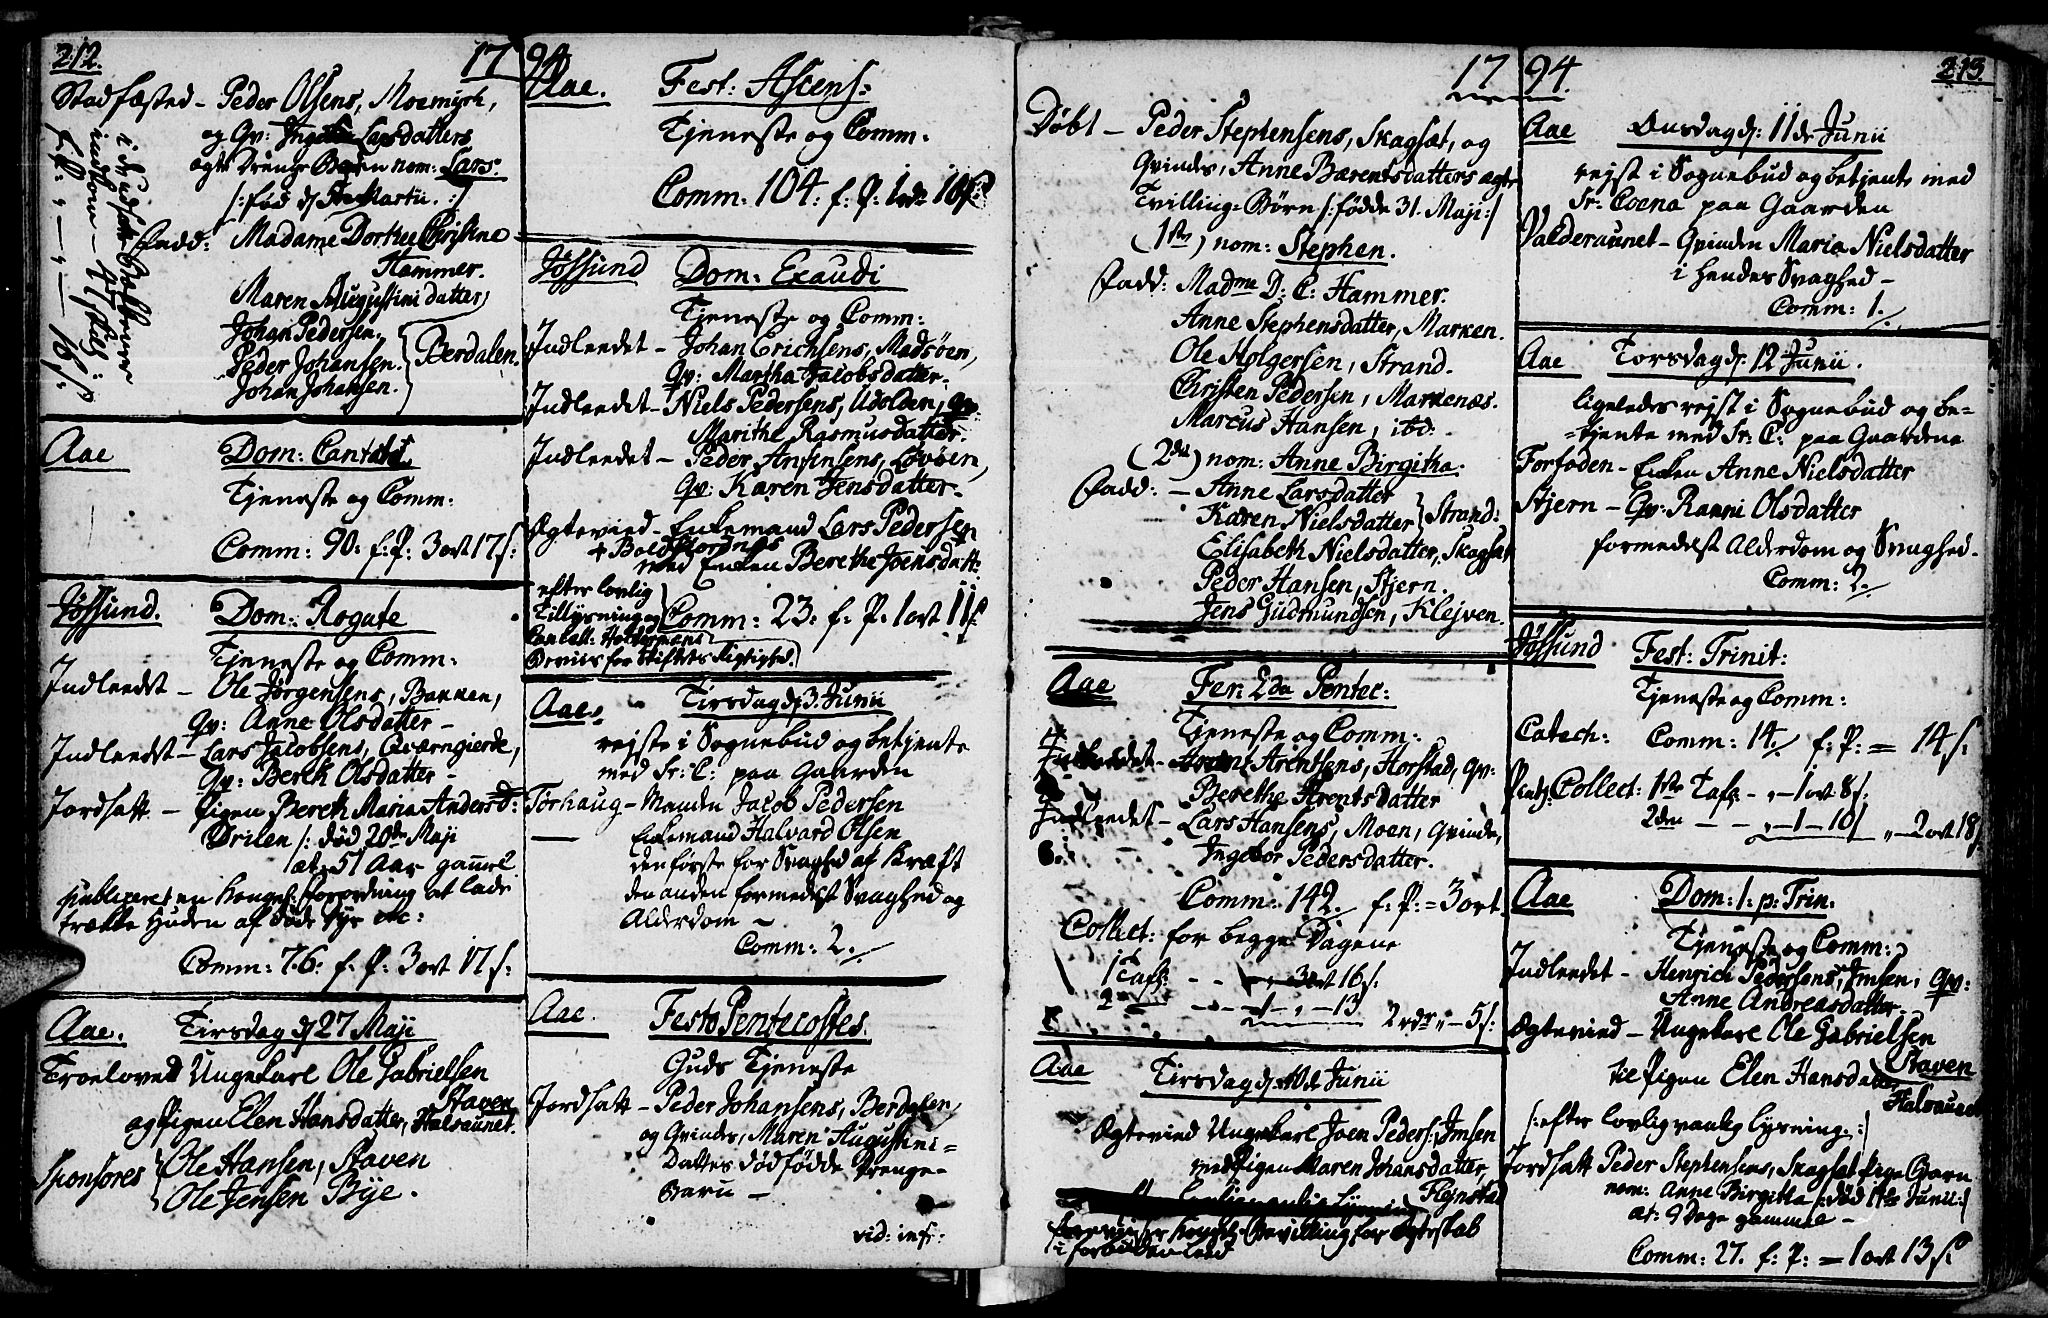 212.
17 94
Stadfæsted - Peder Olsens, Moemyrh,
og Qv: Larsdatters
ægte Drenge Barn nom: Lars.
/: fød d Martii. :/
Fadd: Madame Dorthea Christina
Hammer.
Maren Augustini datter
Johan Pedersen,
Peder Johansen. Berdalen.
Johan Johansen.
Aae Dom: Cantate
Tjeneste og Comm:
Comm: 90: f: P: 3 ort 17 s:
Jössund. Dom: Rogate
Tjeneste og Comm:
Indleedet - Ole Jörgensens, Bakken,
Qv: Anne Olsdatter -
Indleedet - Lars Jacobsens, Qværngierde,
Qv: Bereth Olsdatter -
Jordsatt - Pigen Bereth Maria Andersd:
Örilen /: död 20de Maji
æt: 51 Aar gaml
publiceret en Kongel: Forordning at lade
trække Huden af döde Dyr etc:
Comm: 76: f: P: 3 ort 17 s:
Aae. Tirsdag d 27 Maji
Troelovet Ungekarl Ole Gabrielsen
Staven
og Pigen Elen Hansdatter, Halvaunet.
Sponsores Ole Hansen, Staven
Ole Jensen Bÿe.
Aae. Fest: Ascens:
Tjeneste og Comm:
Comm: 104: f: P: 1 rdr 16 s:
Jössund Dom: Exaudi
Tjeneste og Comm:
Indleedet - Johan Erichsens, Madsöen,
Qv: Martha Jacobsdatter.
Indleedet - Niels Pedersens, Udolden, Qv:
Marithe Rasmusdatter.
Indleedet - Peder Ansensens, Lövöen,
Qv: Karen Jensdatter.
Ægtevied - Enkemand Lars Pedersen
med Enken Berethe Joensdatt:
efter lovlig
Tillysning og
Comm: 23. f. P. 1 ort 11 s.
Beviis for Skiftets Rigtighed.
Aae. Tirsdag d 3. Junii
rejste i Sognebud og betjente
med Fr: C: paa Gaarden
Torhaug - Manden Jacob Pedersen
- Enkemand Halvard Olsen
den förste for Svaghed af Kræft
den anden formedelst Svaghed og
Alderdom -
Comm: 2.
Aae. Festo Pentecostes.
Guds Tjeneste
Jordsatt - Peder Johansens, Berdalen,
og Qvindes, Maren Augustini-
Datters dödfödde Drenge-
Barn -
vid: inf:
17 94.
213.
Döbt - Peder Stephensens, Skagsæt, og
Qvindes, Anne Bærentsdatters ægte
Tvilling-Börn /: födde 31. Maji :/
(1ste) nom: Stephen.
Fadd: Madme D: C: Hammer.
Anne Stephensdatter, Marken.
Ole Holgersen, Strand.
Christen Pedersen, Markenæs.
Marcus Hansen, ibd:
(2det) nom: Anne Birgitha.
Fadd: - Anne Larsdatter
Karen Nielsdatter Strand:
Elisabeth Nielsdatter, Skagsæt
Peder Hansen, Stjern.
Jens Gudmundsen, Klejven.
Aae Fer: 2da Pentec:
Tjeneste og Comm:
Indleedet - Arent Arentsens, Horstad, Qv:
Berethe Arentsdatter
Indleedet - Lars Hansens, Moen, Qvinde,
Ingebor Pedersdatter.
Comm: 142. f: P: = 3 ort
Collect: for begge Dagene
1 Tafl: - - 3 ort 16 s.
2 - - - 1 - - 13
2 rdr - 5 s:
Aae Tirsdag d: 10de Junii
Ægtevied Ungekarl Joen Peders: Imsen
med Pigen Maren Johansdatter,
Flejnstad
Kongl: Bevilling for Ægteskab
i forbuden leed
Aae Onsdag d: 11de Junii
rejst i Sognebud og betjente med
Sr: Coena paa Gaarden
Valderaunet - Qvinden Maria Nielsdatter
i Hendes Svaghed -
Comm: 1.
Aae Torsdag d: 12 Junii.
ligeledes rejst i Sognebud og be=
=tjente med Sr: C: paa Gaardene
Forfoden - Enken Anne Nielsdatter
Stjern - Qv: Ranni Olsdatter
formedelst Alderdom og Svaghed.
Comm: 2.
Jössund Fest: Trinit:
Tjeneste og Comm:
Catech: Comm: 14. f: P: = 14 s.
Collect: 1ste Tafl - - 1 ort 8 s:
2den - - - 1 - 10 s - 2 ort 18 s
Aae Dom: 1. p: Trin.
Tjeneste og Comm:
Indleedet - Henrich Pedersens, Imsen, Qv:
Anne Andreasdatter.
Ægtevied - Ungekarl Ole Gabrielsen
Staven
til Pigen Elen Hansdatter
Halvaunet
/: efter lovlig vanlig Lysning. :/
Jordsatt Peder Stephensens, Skagsæt Pige Barn
nom: Anne Birgitta /: död 11te Junii :/
æt: 9 Dage gammel -
Comm: 27. f: P: = 1 ort 13 s.